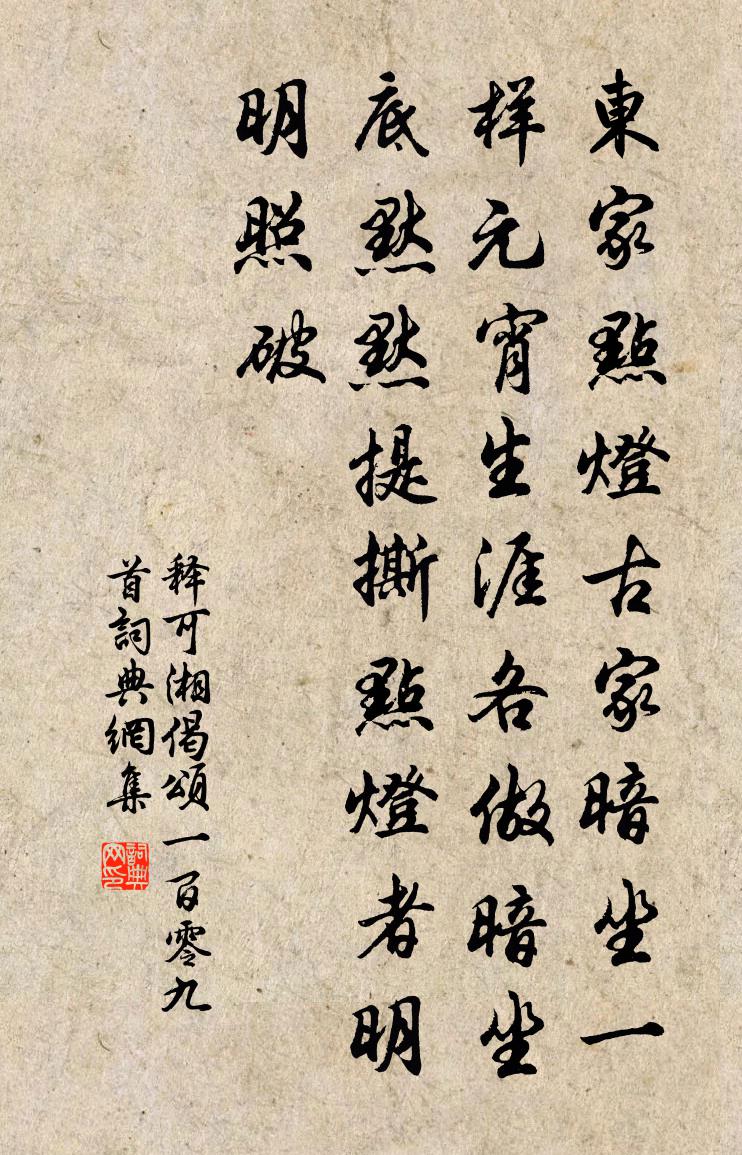 東家點燈古家暗坐一
样元宵生涯各做暗坐
底默默提撕點燈者明
明照破
释可湘偈頌一百零九
首詞典網集
詞典
网印